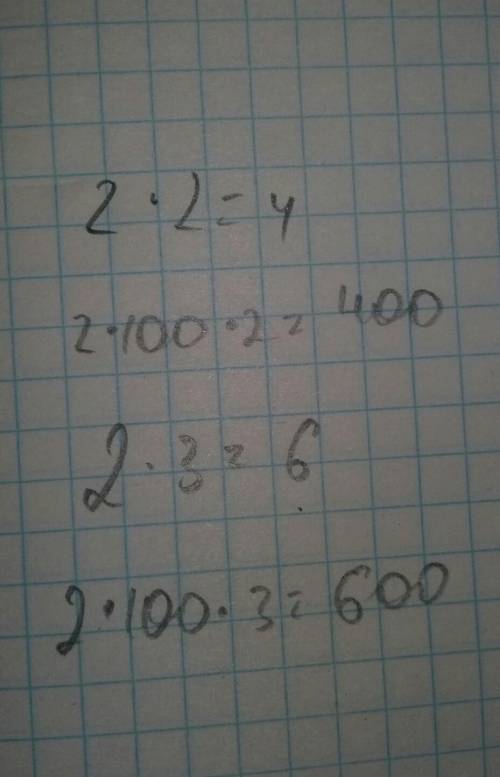 2·2=4
2·100·2=400
2·3=6
2·100·3=600